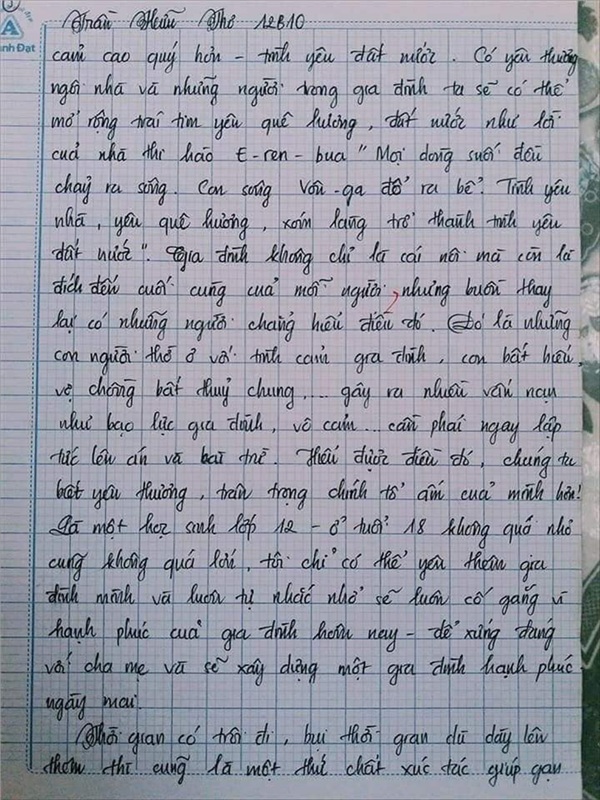 A
anh Đạt
Trần Hữu Thơ 12B10
cảm cao quý hơn - tình yêu đất nước. Có yêu thương
ngôi nhà và những người trong gia đình ta sẽ có thể
mở rộng trái tim yêu quê hương, đất nước như lời
của nhà thi hào E-ren-bua "Mọi dòng suối đều
chảy ra sông. Con sông Vôn-ga đổ ra bể. Tình yêu
nhà, yêu quê hương, xóm làng trở thành tình yêu
đất nước". Gia đình không chỉ là cái nôi mà còn là
đích đến cuối cùng của mỗi người, nhưng buồn thay
lại có những người chẳng hiểu điều đó. Đó là những
con người thờ ơ với tình cảm gia đình, con bất hiếu,
vợ chồng bất thuỷ chung.... gây ra nhiều vấn nạn
như bạo lực gia đình, vô cảm... cần phải ngay lập
tức lên án và bài trừ. Hiểu được điều đó, chúng ta
biết yêu thương, trân trọng chính tổ ấm của mình hơn!
Là một học sinh lớp 12 - ở tuổi 18 không quá nhỏ
cũng không quá lớn, tôi chỉ có thể yêu thêm gia
đình mình và luôn tự nhắc nhở sẽ luôn cố gắng vì
hạnh phúc của gia đình hôm nay - để xứng đáng
với cha mẹ và sẽ xây dựng một gia đình hạnh phúc
ngày mai.
Thời gian có trôi đi, bụi thời gian dù dày lên
thêm thì cũng là một thứ chất xúc tác giúp gạn